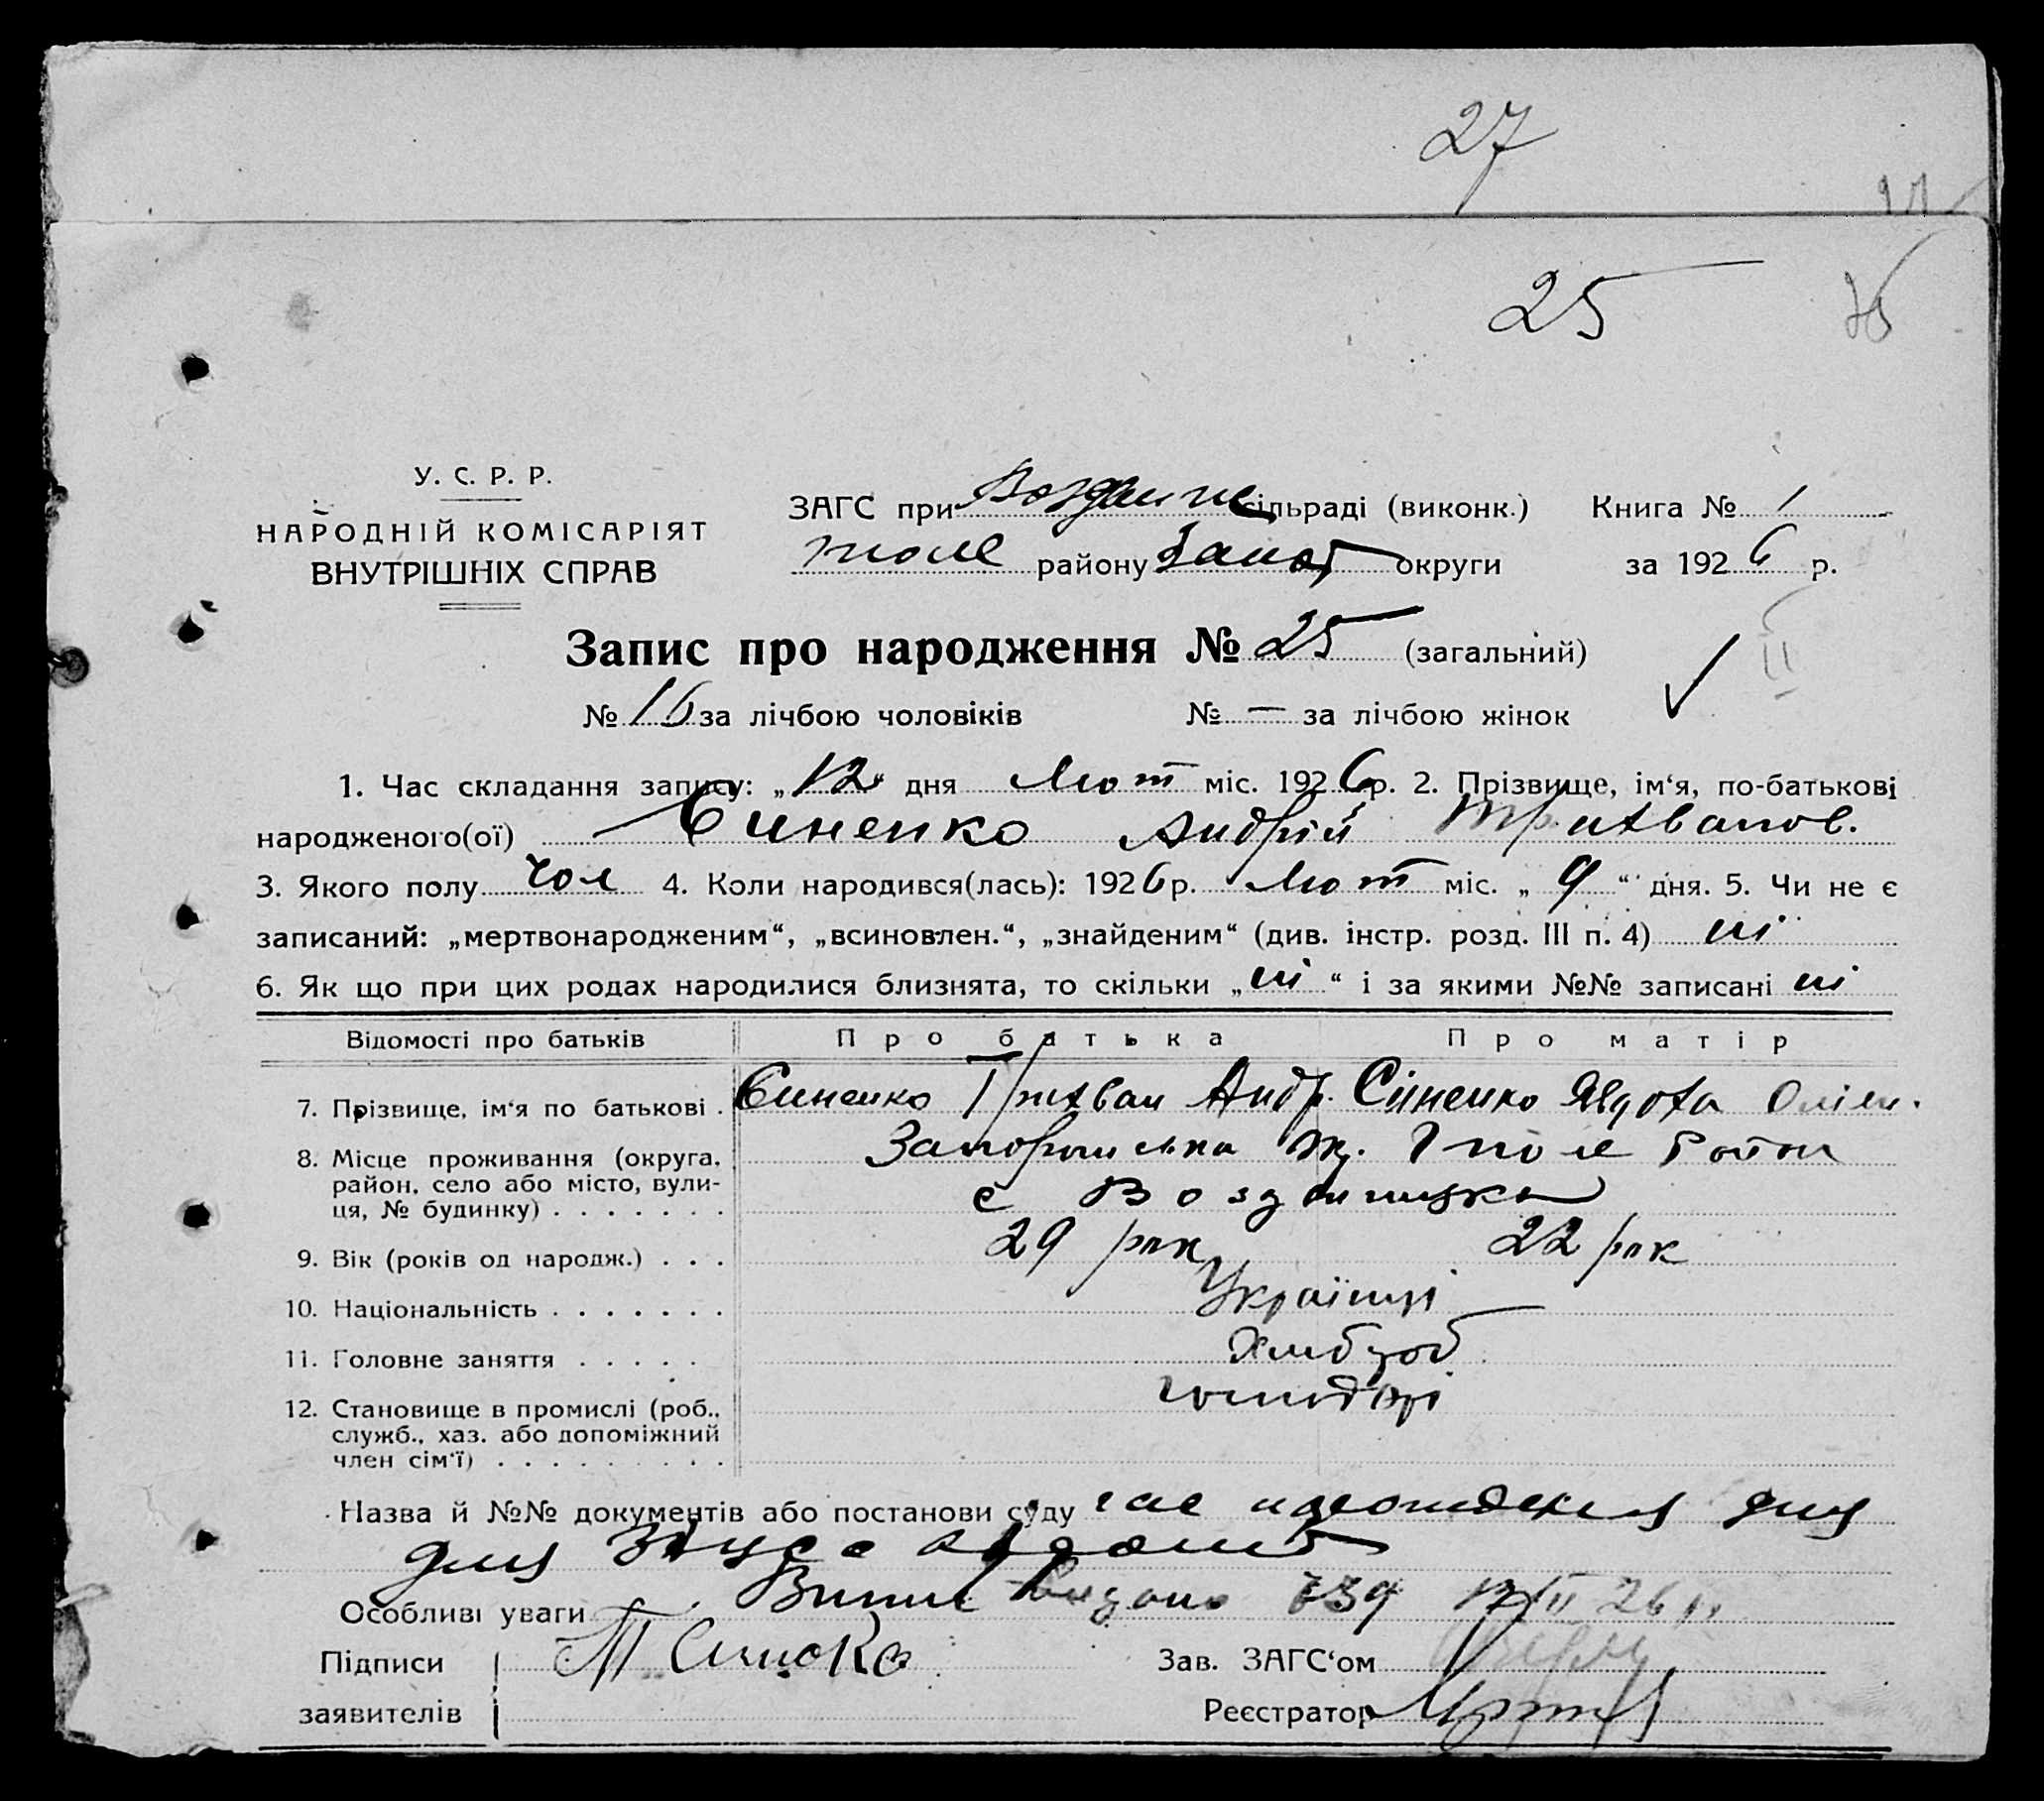 27
25
У. С. Р. Р.
НАРОДНІЙ КОМІСАРІЯТ
ВНУТРІШНІХ СПРАВ
ЗАГС при сільраді (виконк.) Книга № 1
поле району Запор округи за 1926 р.
Запис про народження № 25 (загальний)
№ 16 за лічбою чоловіків № — за лічбою жінок
1. Час складання запису: „12“ дня Лют міс. 1926 р. 2. Прізвище, ім‘я, по-батькові
народженого(ої) Синенко Андрій Трихванов.
3. Якого полу Чол 4. Коли народився(лась): 1926 р. Лют міс. „9“ дня. 5. Чи не є
записаний: „мертвонародженим“, „всиновлен.“, „знайденим“ (див. інстр. розд. III п. 4) ні
6. Як що при цих родах народилися близнята, то скільки „ні“ і за якими №№ записані ні
Відомості про батьків Про батька Про матір
7. Прізвище, ім‘я по батькові . Синенко Трихван Андр. Сіненко Явдоха
8. Місце проживання (округа, район, село або місто, вулиця, № будинку) . . . . . . . Запорижська поле Район
с Воздвиживка
9. Вік (років од народж.) . . . 29 рок 22 рок
10. Національність . . . . . . . Українці
11. Головне заняття . . . . . Хлібороб
12. Становище в промислі (роб., служб., хаз. або допоміжний член сім‘ї) . . . . . . . . . господарі
Назва й №№ документів або постанови суду
для
Особливі уваги Видано 739 26
Підписи Т Синеко Зав. ЗАГС‘ом
заявителів Реєстратор